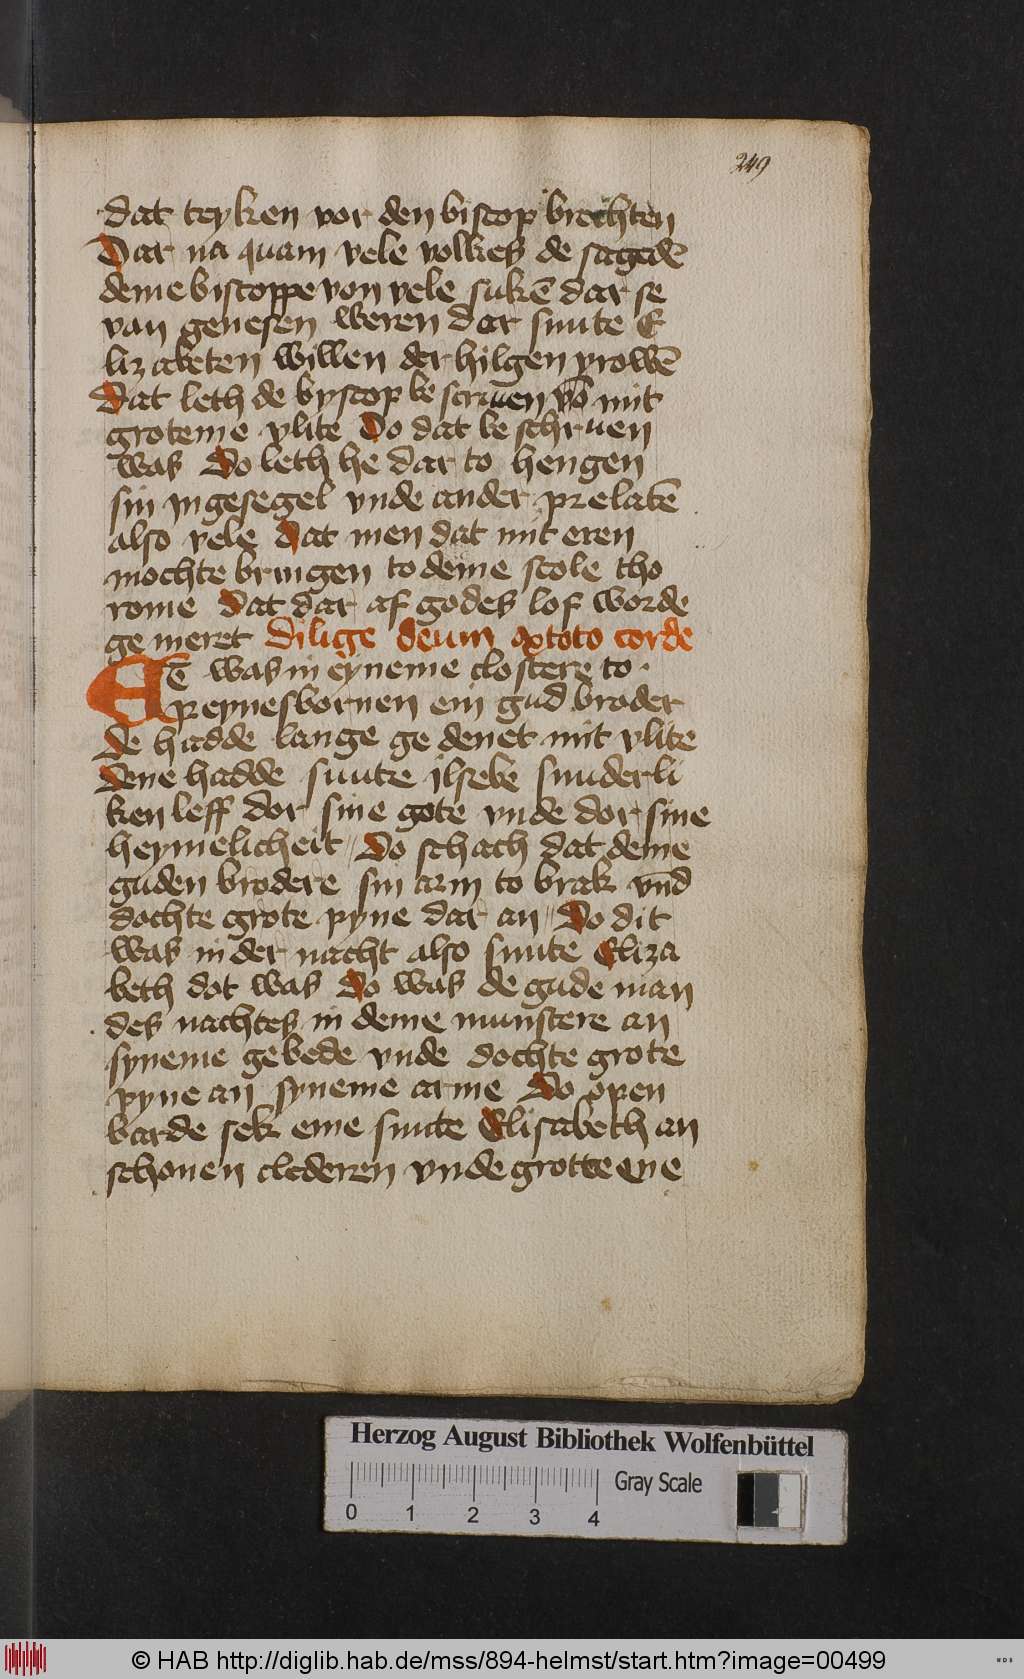 249
dat teyken vor den biscop brechten
Dar na quam vele volkes de sagedē
deme biscoppe von vele sukē dar se
van genesen weren dor sunte E
lizabeten willen der hilgen vrowē
dat leth de byscop bescruen vō mit
groteme vlite Do dat beschruen
was Do leth he dar to hengen
sin yngesegel vnde ander prelatē
also vele dat men dat mit eren
mochte bringen to deme stole tho
rome Dat dar af godes lof worde
ge meret Dilige deum ex toto corde
Et was in eyneme clostere to
reynesbornen ein gud broder
de hadde lange ge denet mit vlite
Dene hadde sunte ilsebe sunderli
ken leff dor sine gote vnde dor sine
heymelicheit Do schach dat deme
guden brodere sin arm to brak vnd
dochte grote pyne dar an Do dit
was in der nacht also sunte Eliza
beth dot was Do was de gude man
des nachtes in deme munstere an
syneme gebede vnde dochte grote
pyne an syneme arme Do open
barde sek eme sunte Elisabeth an
schonen clederen vnde grotte ene
Herzog August Bibliothek Wolfenbüttel
Gray Scale
0 1 2 3 4
© HAB http://diglib.hab.de/mss/894-helmst/start.htm?image=00499